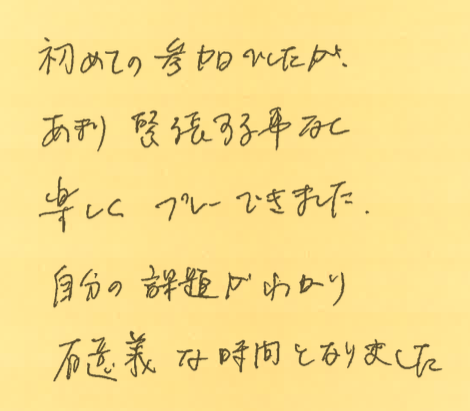 初めての参加でしたが、
あまり緊張する事なく
楽しくプレーできました.
自分の課題がわかり
有意義な時間となりました